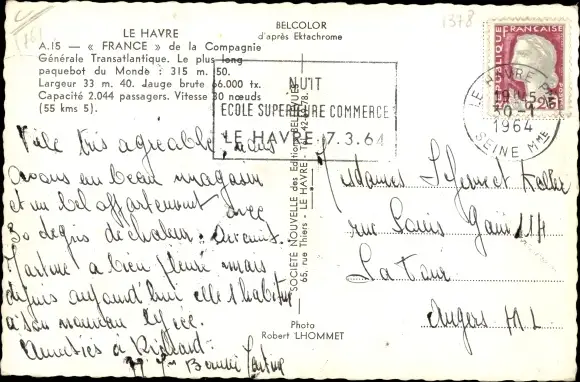 1378
761
LE HAVRE
A.15 — « FRANCE » de la Compagnie
Générale Transatlantique. Le plus long
paquebot du Monde : 315 m. 50.
Largeur 33 m. 40. Jauge brute 66.000 tx.
Capacité 2.044 passagers. Vitesse 30 nœuds
(55 kms 5).
BELCOLOR
d'après Ektachrome
NUIT
ECOLE SUPERIEURE COMMERCE
LE HAVRE 7.3.64
REPUBLIQUE FRANCAISE
0,25
LE HAVRE
19H45
30-1
1964
SEINE MME
Ville très agréable, nous
avons un beau magasin
et un bel appartement avec
30 degrés de chaleur.
Martine a bien pleuré mais
depuis aujourd'hui elle s'habitue
à son nouveau lycée.
Amitiés à Richard
Martine
SOCIÉTÉ NOUVELLE des Editions BELLEVUES
65, rue Thiers - LE HAVRE - Tél. 42-
Photo
Robert LHOMMET
Mesdames et
rue Louis Gain 114
La Tour
Angers M L